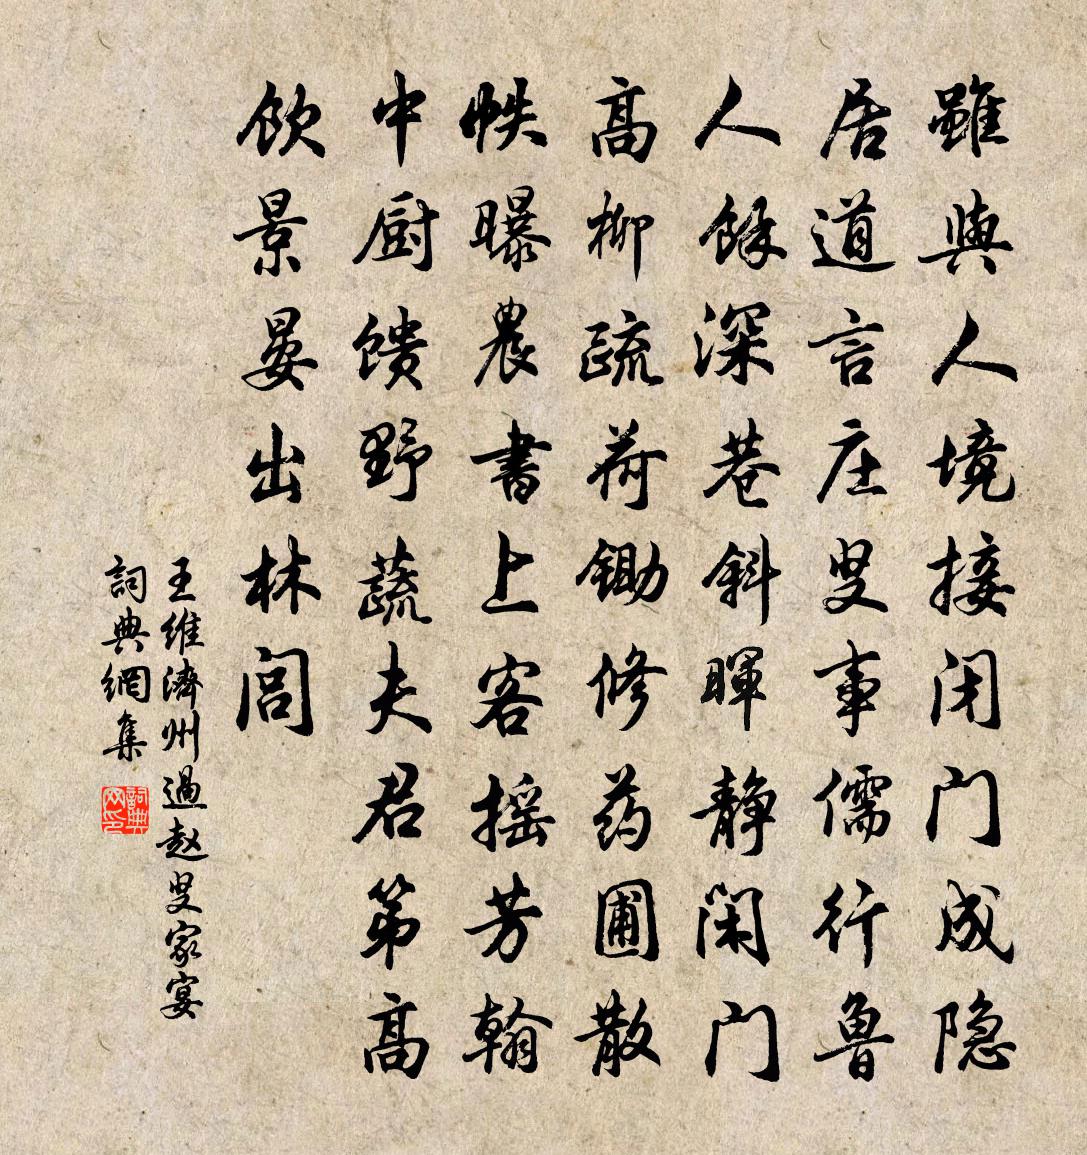 雖與人境接闭门成隐
居道言庄叟事儒行鲁
人餘深巷斜暉静闲门
高柳疏荷锄修药圃散
帙曝農書上客摇芳翰
中厨馈野蔬夫君第高
飲景晏出林閭
王维濟州過赵叟家宴
詞典網集
詞典网印